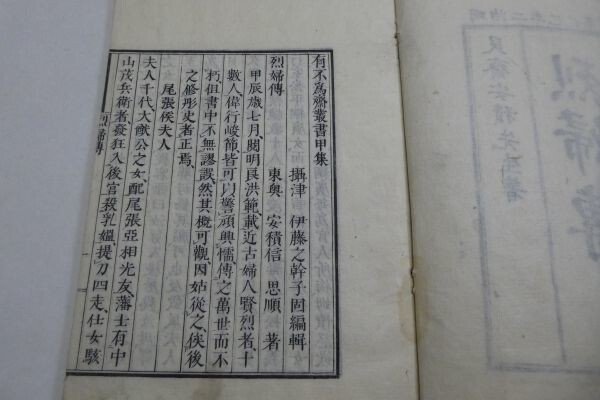 有不爲齋叢書甲集
攝津 伊藤之幹子固編輯
烈婦傳
東奥 安積信 思順 著
甲辰歳七月、閲明良洪範、載近古婦人賢烈者、十
數人、偉行峻節、皆可以警頑興懦、傳之萬世而不
朽、但書中不無謬誤、然其概可觀、因姑從之、俟後
之修彤史者正焉、
尾張侯夫人
夫人千代、大猷公之女、配尾張亞相光友、藩士有中
山茂兵衞者、發狂入後宮、殺乳媼、提刀四走、仕女駭
烈婦傳